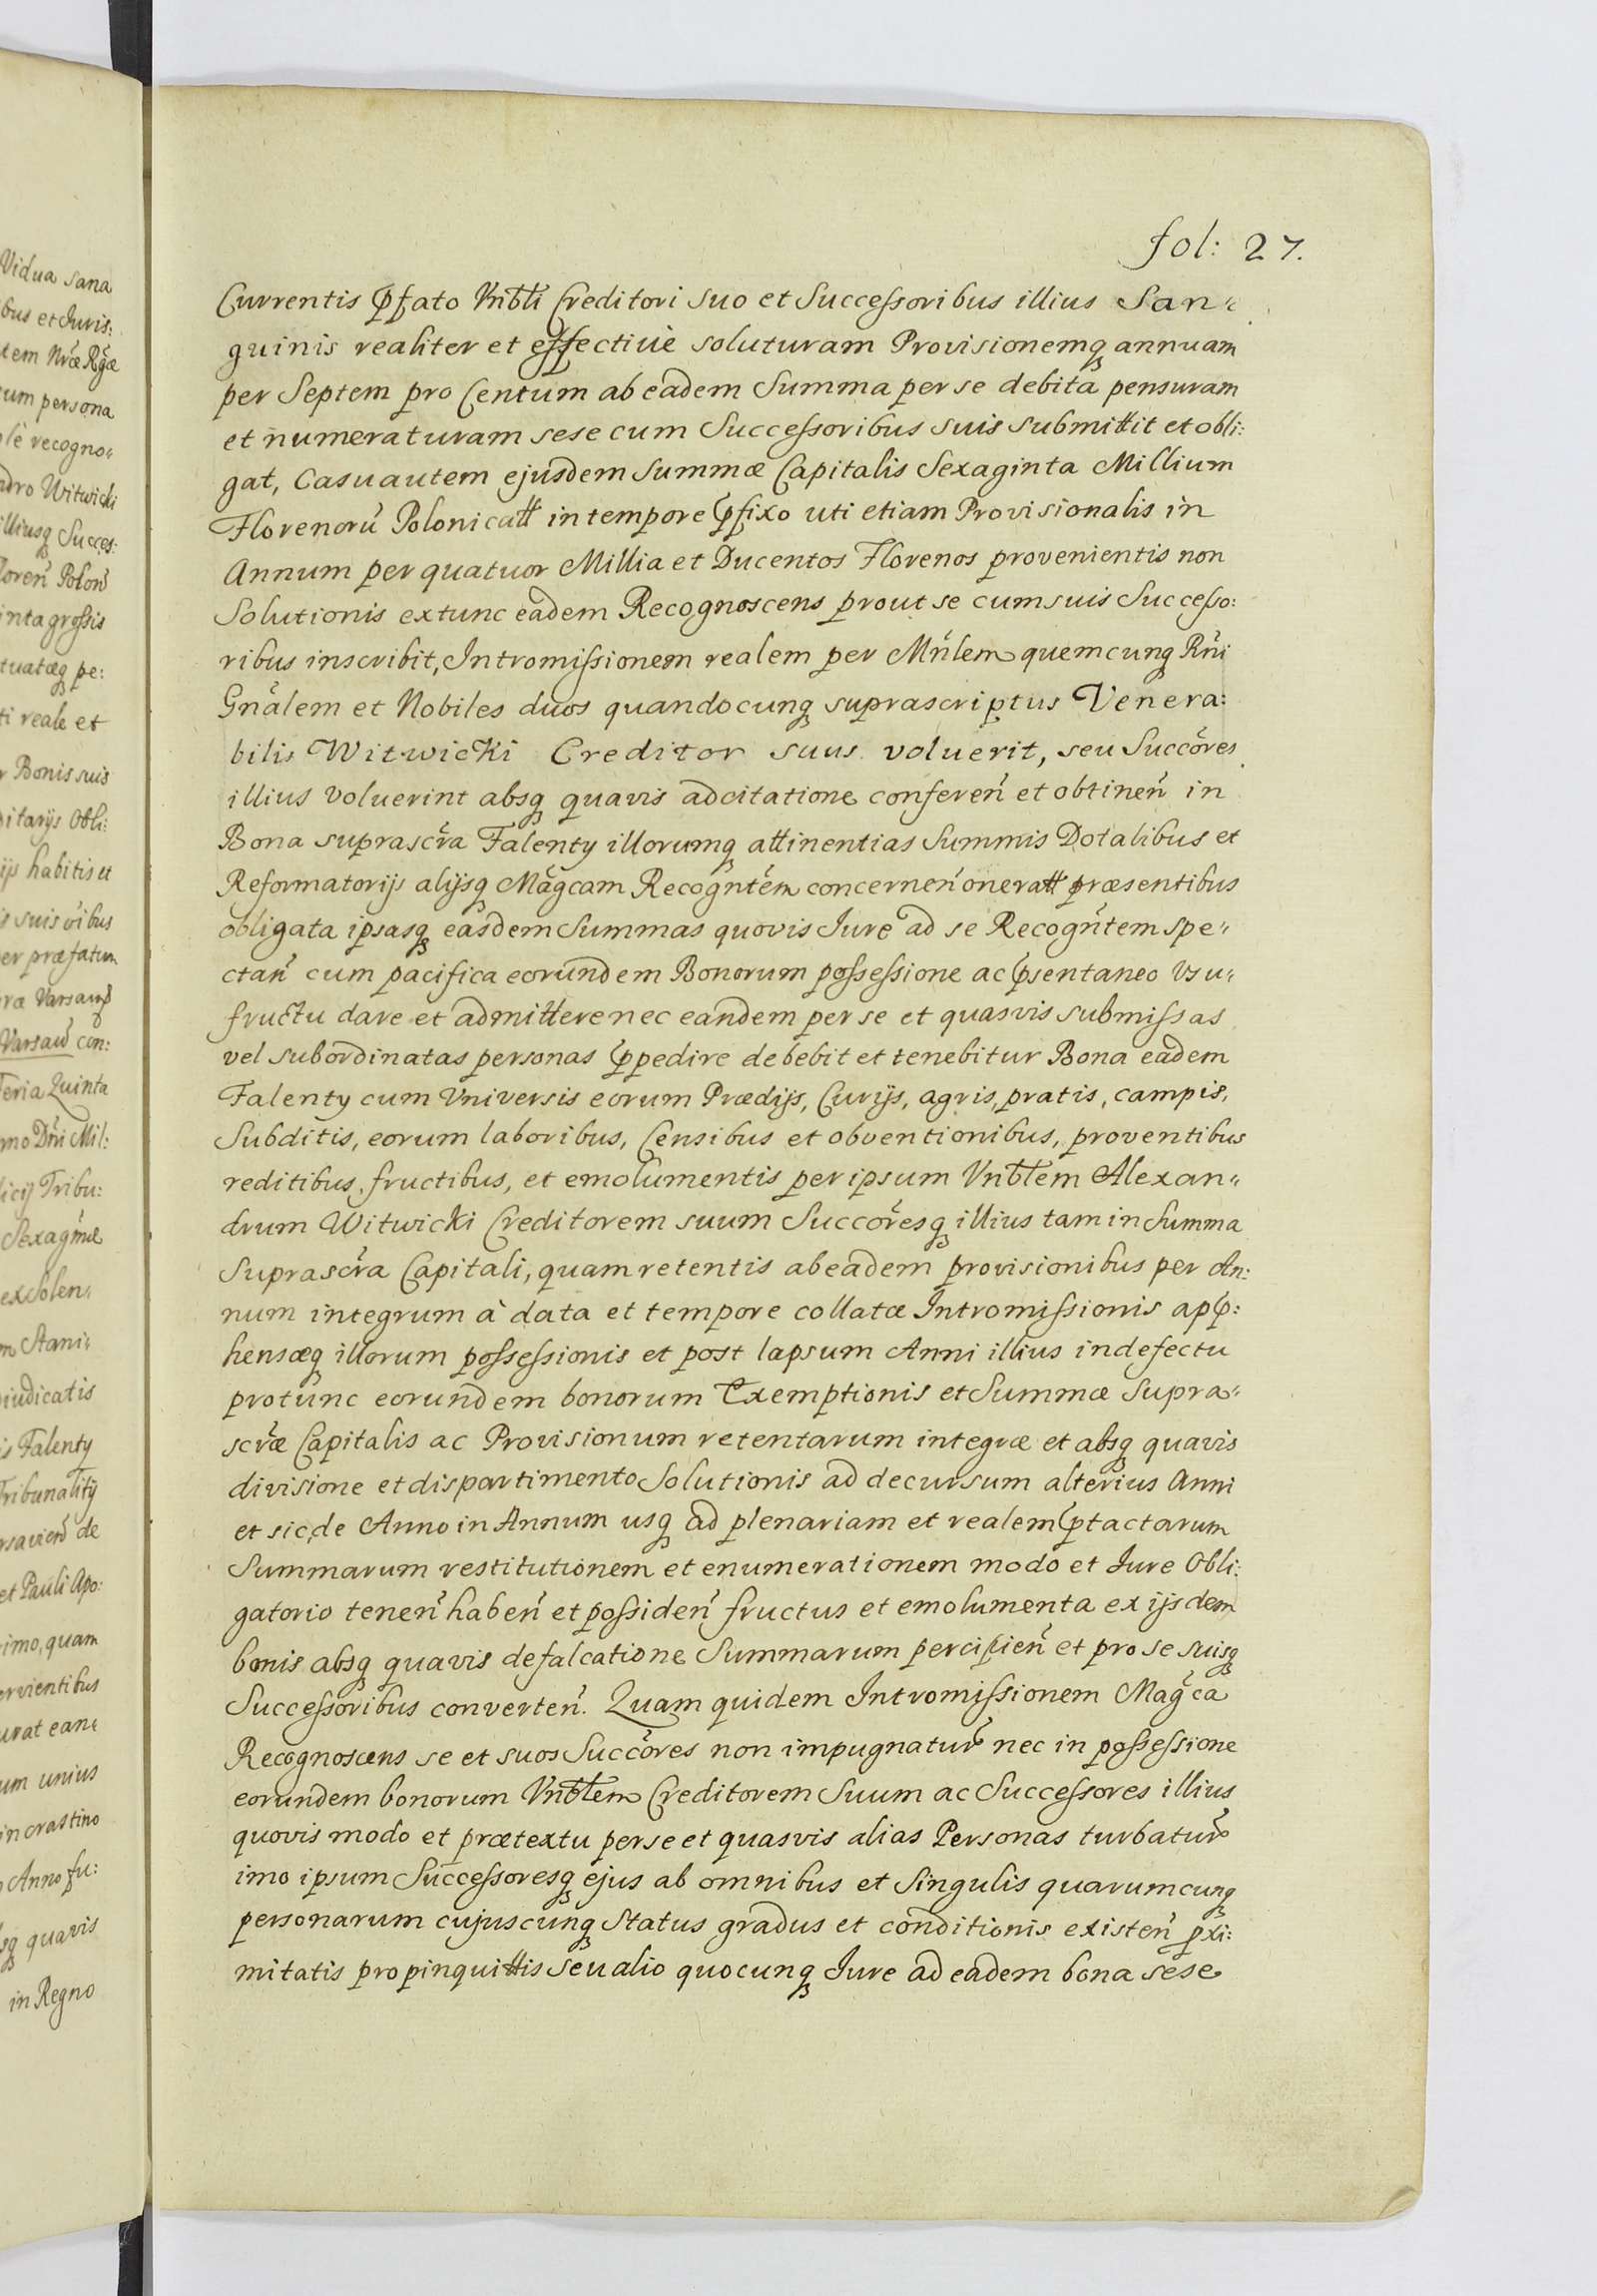 Vidua sana
bus et Juris:
tem Nrae Rgae
cum persona
le recogno„
ndro Witwicki
illiusq Succes:
loren Polon
inta grossis
tuataeq pe:
ti reale et
r Bonis suis
ditarijs Obli:
ijs habitis et
is suis oibus
er praefatum
Varsavien con:
Feria Quinta
mo Dni Mil:
licij Tribu:
exsolen„
m Stani„
iudicatis
is Falenty
Tribunalitij
rsavien de
et Pauli Apo:
imo, quam
ervientibus
urat ean„
um unius
in crastino
Anno fu:
sq quavis
in Regno
fol: 27.
Currentis Pfato Vnbli Creditori suo et Successoribus illius San„
guinis realiter et effective soluturam Provisionemq annuam
per Septem pro Centum ab eadem Summa per se debita pensuram
et numeraturam sese cum Successoribus suis submittit et obli:
gat, Casu autem ejusdem Summae Capitalis Sexaginta Millium
Florenorũ Polonicatt in tempore Pfixo uti etiam Provisionalis in
Annum per quatuor Millia et Ducentos Florenos provenientis non
Solutionis extunc eadem Recognoscens prout se cum suis Successo:
ribus inscribit, Intromissionem realem per Mnlem quemcunq Rni
Gnalem et Nobiles duos quandocunq suprascriptus Venera:
bilis Witwicki Creditor suus voluerit, seu Succores
illius voluerint absq quavis adcitatione conferen et obtinen in
Bona suprascra Falenty illorumq attinentias Summis Dotalibus et
Reformatorijs alijsq Magcam Recogntem concernen oneratt praesentibus
obligata ipsasq easdem Summas quovis Jure ad se Recogntem spe„
ctan cum pacifica eorundem Bonorum possessione ac Psentaneo Vsu„
fructu dare et admittere nec eandem per se et quasvis submissas
vel subordinatas personas Ppedire debebit et tenebitur Bona eadem
Falenty cum Vniversis eorum Praedijs, Curijs, agris, pratis, campis,
Subditis, eorum laboribus, Censibus et obventionibus, proventibus
reditibus, fructibus, et emolumentis per ipsum Vnblem Alexan„
drum Witwicki Creditorem suum Succoresq illius tam in Summa
Suprascra Capitali, quam retentis ab eadem provisionibus per An:
num integrum à data et tempore collatae Intromissionis apP:
hensaeq illorum possessionis et post lapsum Anni illius in defectu
protunc eorundem bonorum Exemptionis et Summae Supra„
scrae Capitalis ac Provisionum retentarum integrae et absq quavis
divisione et dispartimento Solutionis ad decursum alterius Anni
et sic de Anno in Annum usq ad plenariam et realem Ptactarum
Summarum restitutionem et enumerationem modo et Jure Obli:
gatorio tenen haben et possiden fructus et emolumenta ex ijsdem
bonis absq quavis defalcatione Summarum percipien et pro se suisq
Successoribus converten. Quam quidem Intromissionem Magca
Recognoscens se et suos Succores non impugnatur nec in possessione
eorundem bonorum Vnblem Creditorem Suum ac Successores illius
quovis modo et praetextu per se et quasvis alias Personas turbatur
imo ipsum Successoresq ejus ab omnibus et Singulis quarumcunq
personarum cujuscunq Status gradus et conditionis existen pxi:
mitatis propinquittis Seu alio quocunq Jure ad eadem bona sese